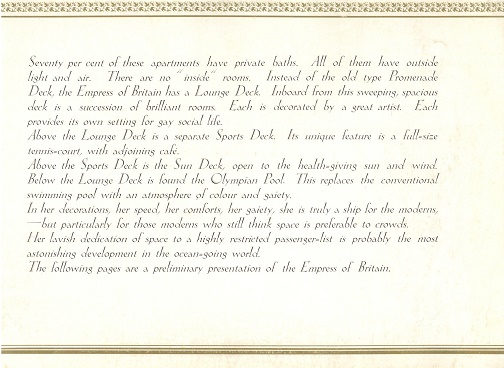 Seventy per cent of these apartments have private baths. All of them have outside
light and air. There are no "inside" rooms. Instead of the old type Promenade
Deck, the Empress of Britain has a Lounge Deck. Inboard from this sweeping, spacious
deck is a succession of brilliant rooms. Each is decorated by a great artist. Each
provides its own setting for gay social life.
Above the Lounge Deck is a separate Sports Deck. Its unique feature is a full-size
tennis-court, with adjoining café.
Above the Sports Deck is the Sun Deck, open to the health-giving sun and wind.
Below the Lounge Deck is found the Olympian Pool. This replaces the conventional
swimming pool with an atmosphere of colour and gaiety.
In her decorations, her speed, her comforts, her gaiety, she is truly a ship for the moderns,
—but particularly for those moderns who still think space is preferable to crowds.
Her lavish dedication of space to a highly restricted passenger-list is probably the most
astonishing development in the ocean-going world.
The following pages are a preliminary presentation of the Empress of Britain.